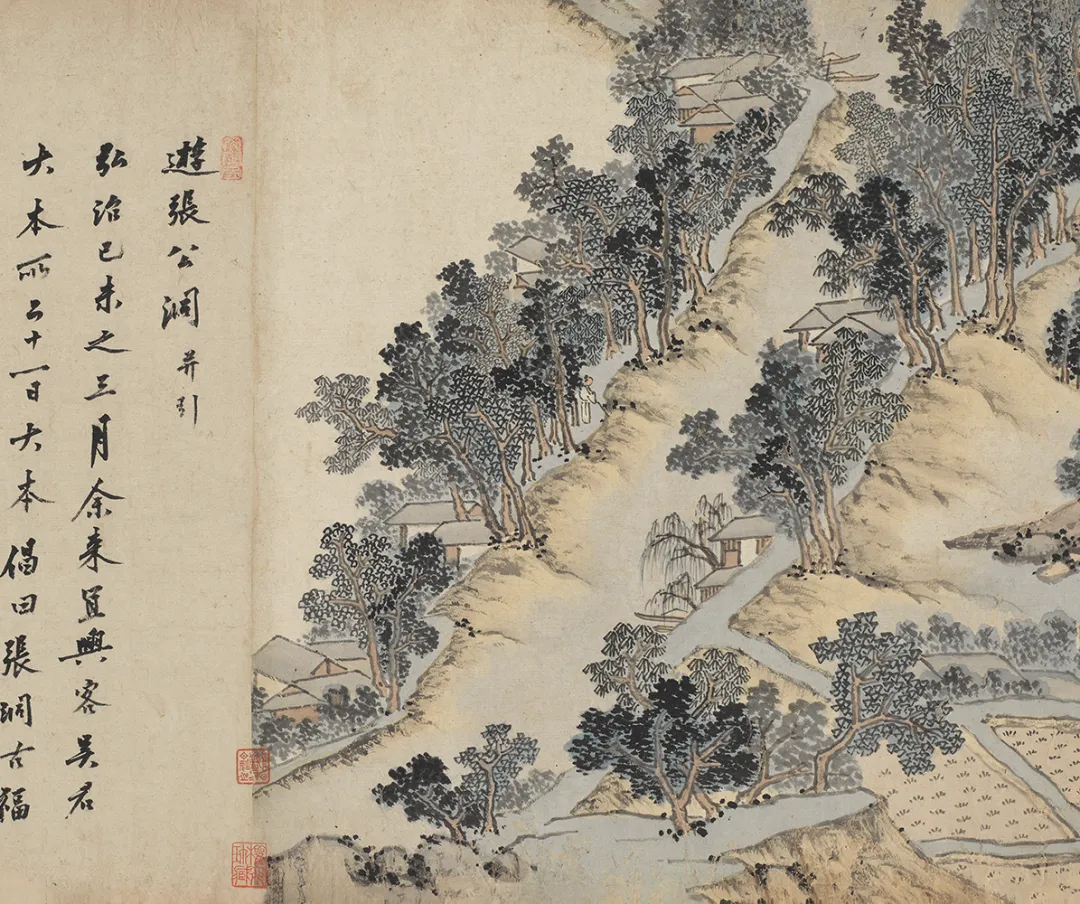 遊張公洞 并引
弘治己未之三月余来宜興客吴君
大本所二十一日大本倡曰張洞古福